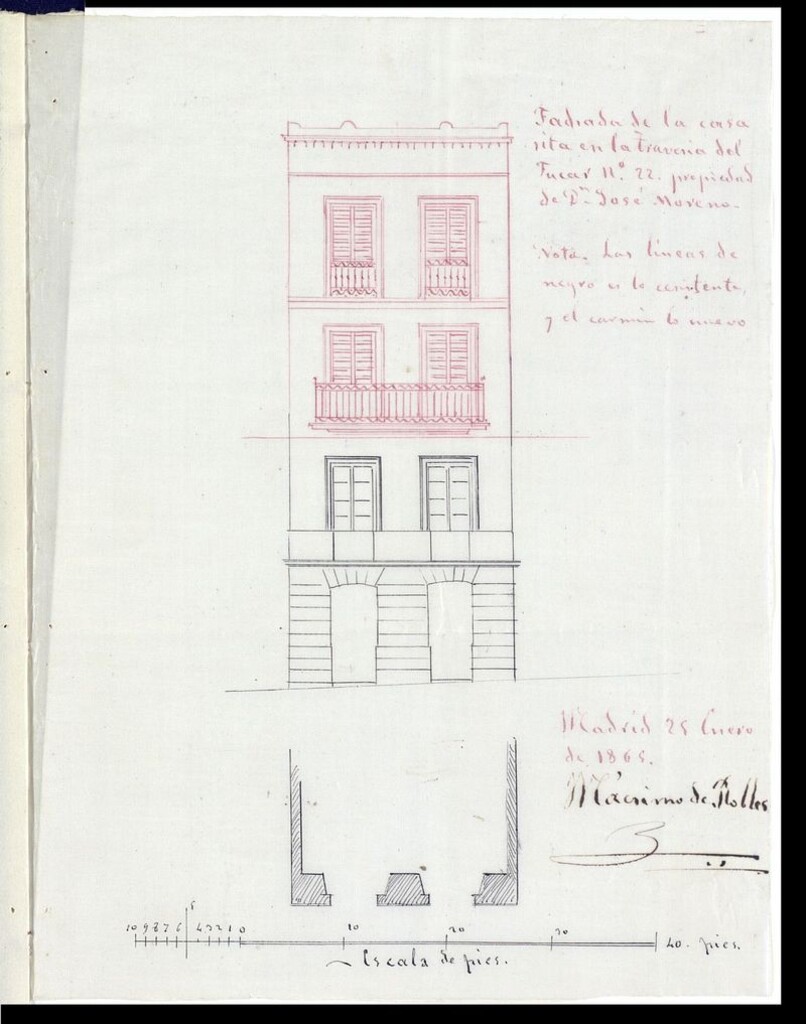 Fachada de la casa
sita en la travesia del
Fucar Nº. 22. propiedad
de Dⁿ José Moreno.
Nota. Las lineas de
negro es lo existente,
y el carmin lo nuevo
Madrid 25 Enero
de 1865.
Máximo de Robles
10 9 8 7 6 5 4 3 2 1 0 10 20 30 40. pies.
Escala de pies.